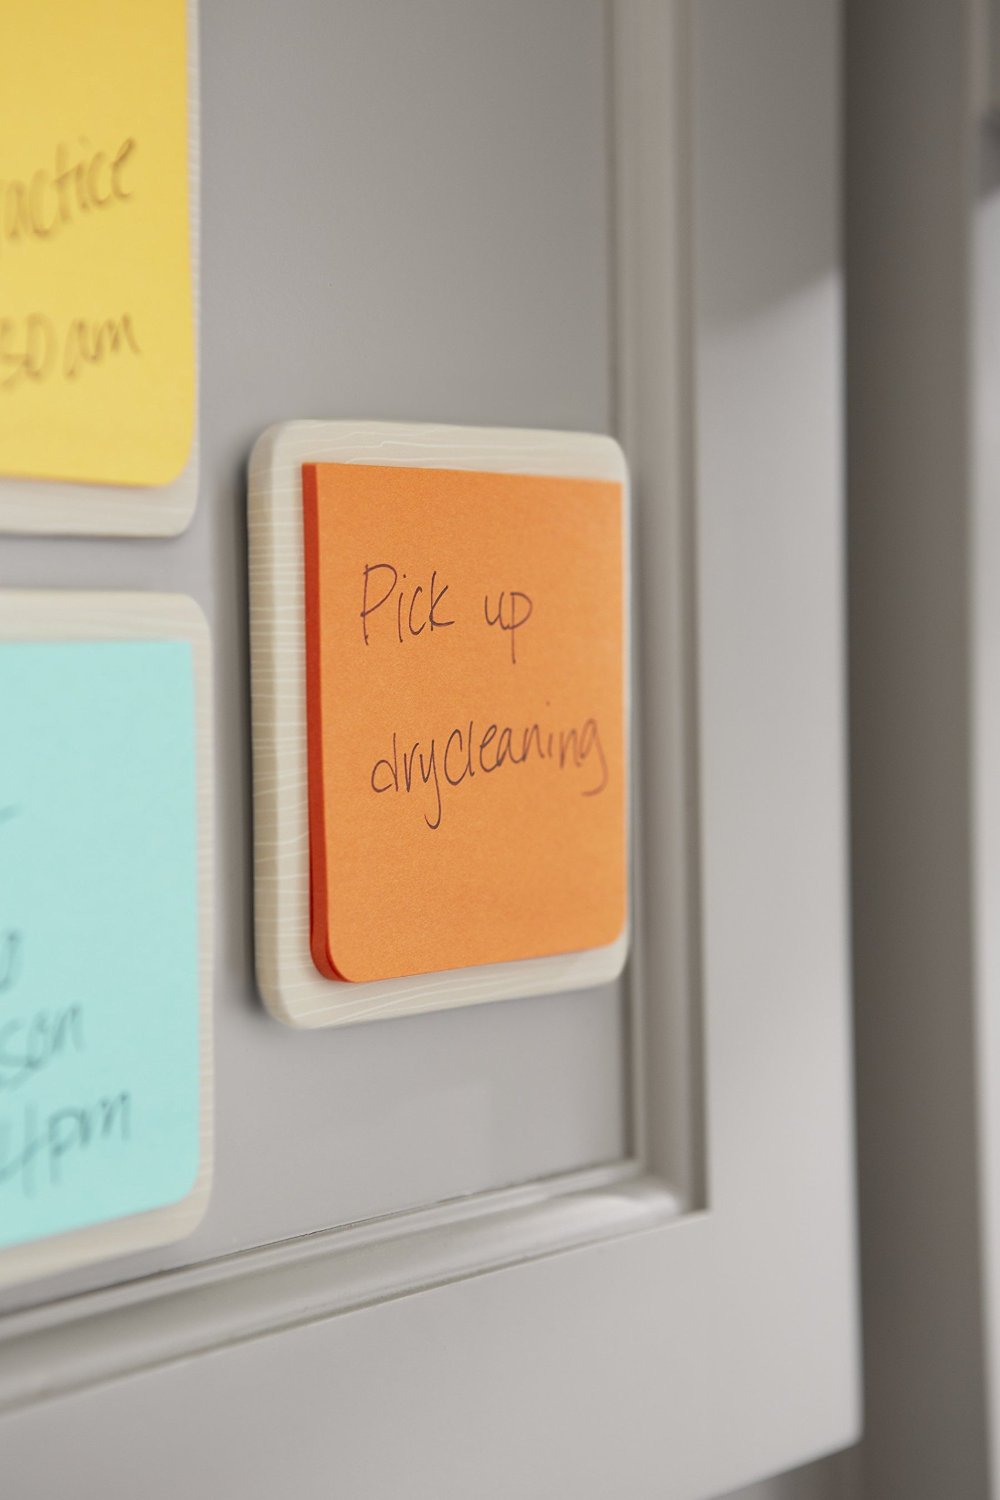 actice
30 am
Pick up
drycleaning
son
4pm